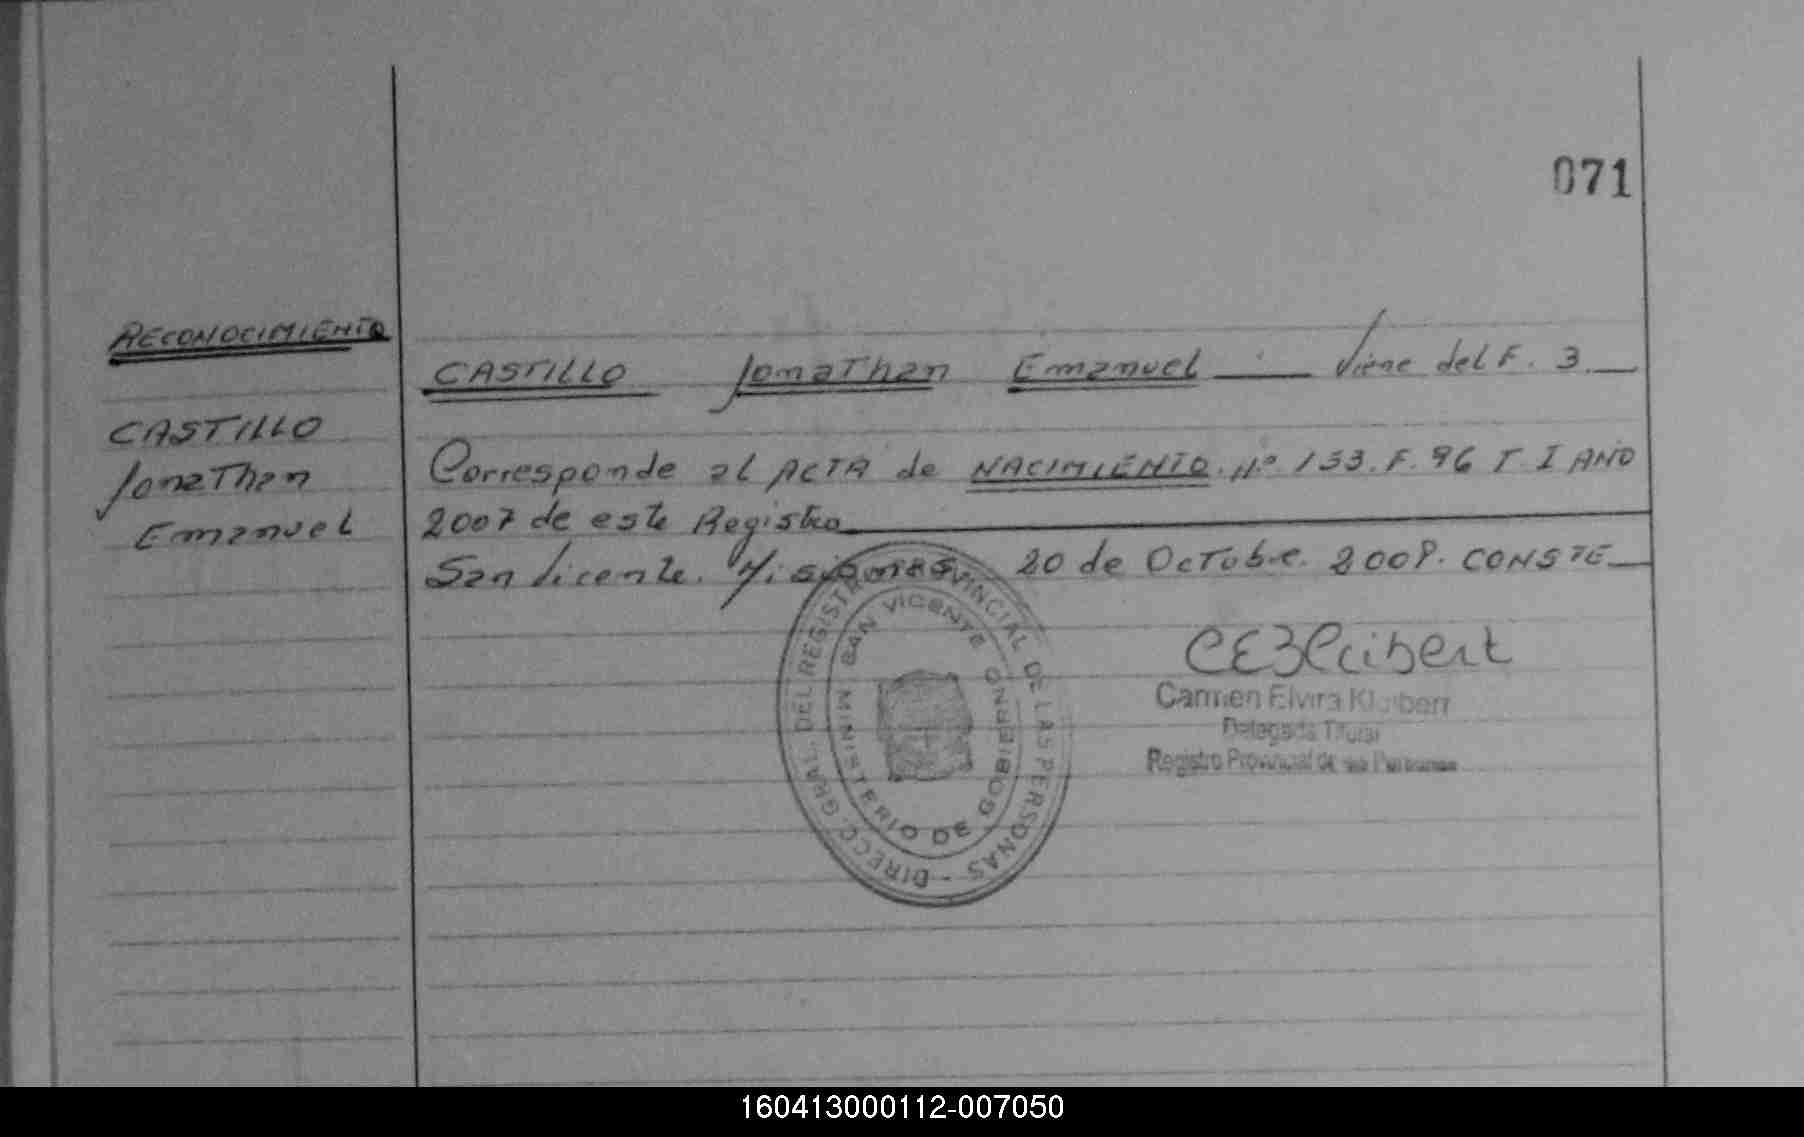 071
RECONOCIMIENTO
CASTILLO
Jonathan
Emanuel
CASTILLO Jonathan Emanuel Viene del F. 3
Corresponde al ACTA de NACIMIENTO. Nº 133. F. 96 T. I AÑO
2007 de este Registro
San Vicente. Misiones 20 de Octubre. 2008. CONSTE
DIRECC. GRAL. DEL REGISTRO PROVINCIAL DE LAS PERSONAS -
SAN VICENTE
MINISTERIO DE GOBIERNO
Carmen Elvira
Delegada Titular
Registro Provincial de las Personas
160413000112-007050